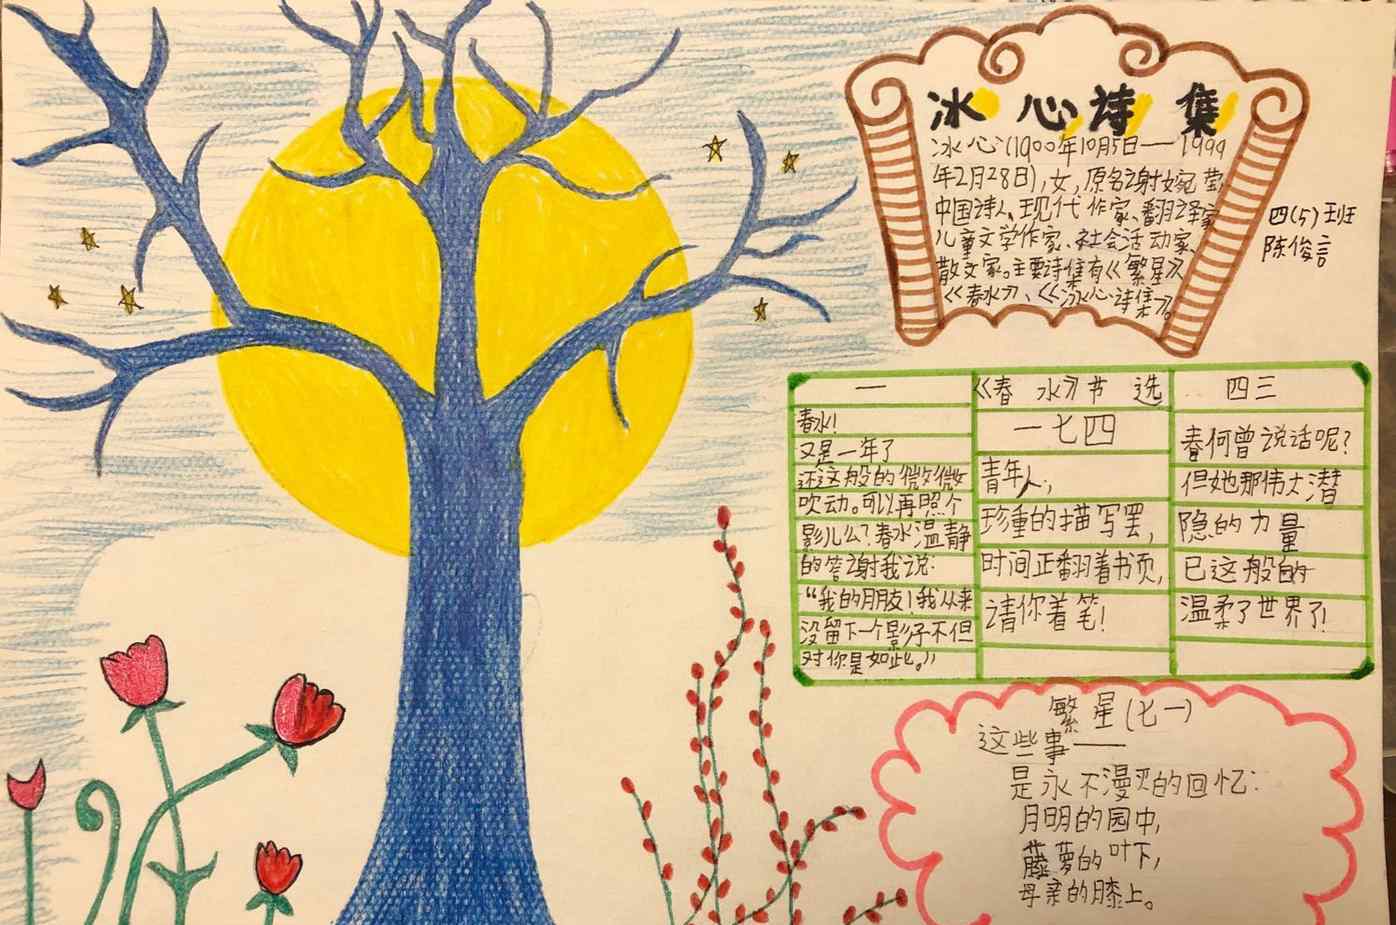 冰心诗集
冰心(1900年10月5日——1999
年2月28日),女,原名谢婉莹,
中国诗人、现代作家、翻译家、
儿童文学作家、社会活动家、
散文家。主要诗集有《繁星》、
《春水》、《冰心诗集》。
四(5)班
陈俊言
一
春水!
又是一年了
还这般的微微
吹动。可以再照个
影儿么?春水温静
的答谢我说:
“我的朋友!我从来
没留下一个影子不但
对你是如此。”
《春水》节选
一七四
青年人,
珍重的描写罢,
时间正翻着书页,
请你着笔!
四三
春何曾说话呢?
但她那伟大潜
隐的力量
已这般的
温柔了世界了!
繁星(七一)
这些事——
是永不漫灭的回忆:
月明的园中,
藤萝的叶下,
母亲的膝上。